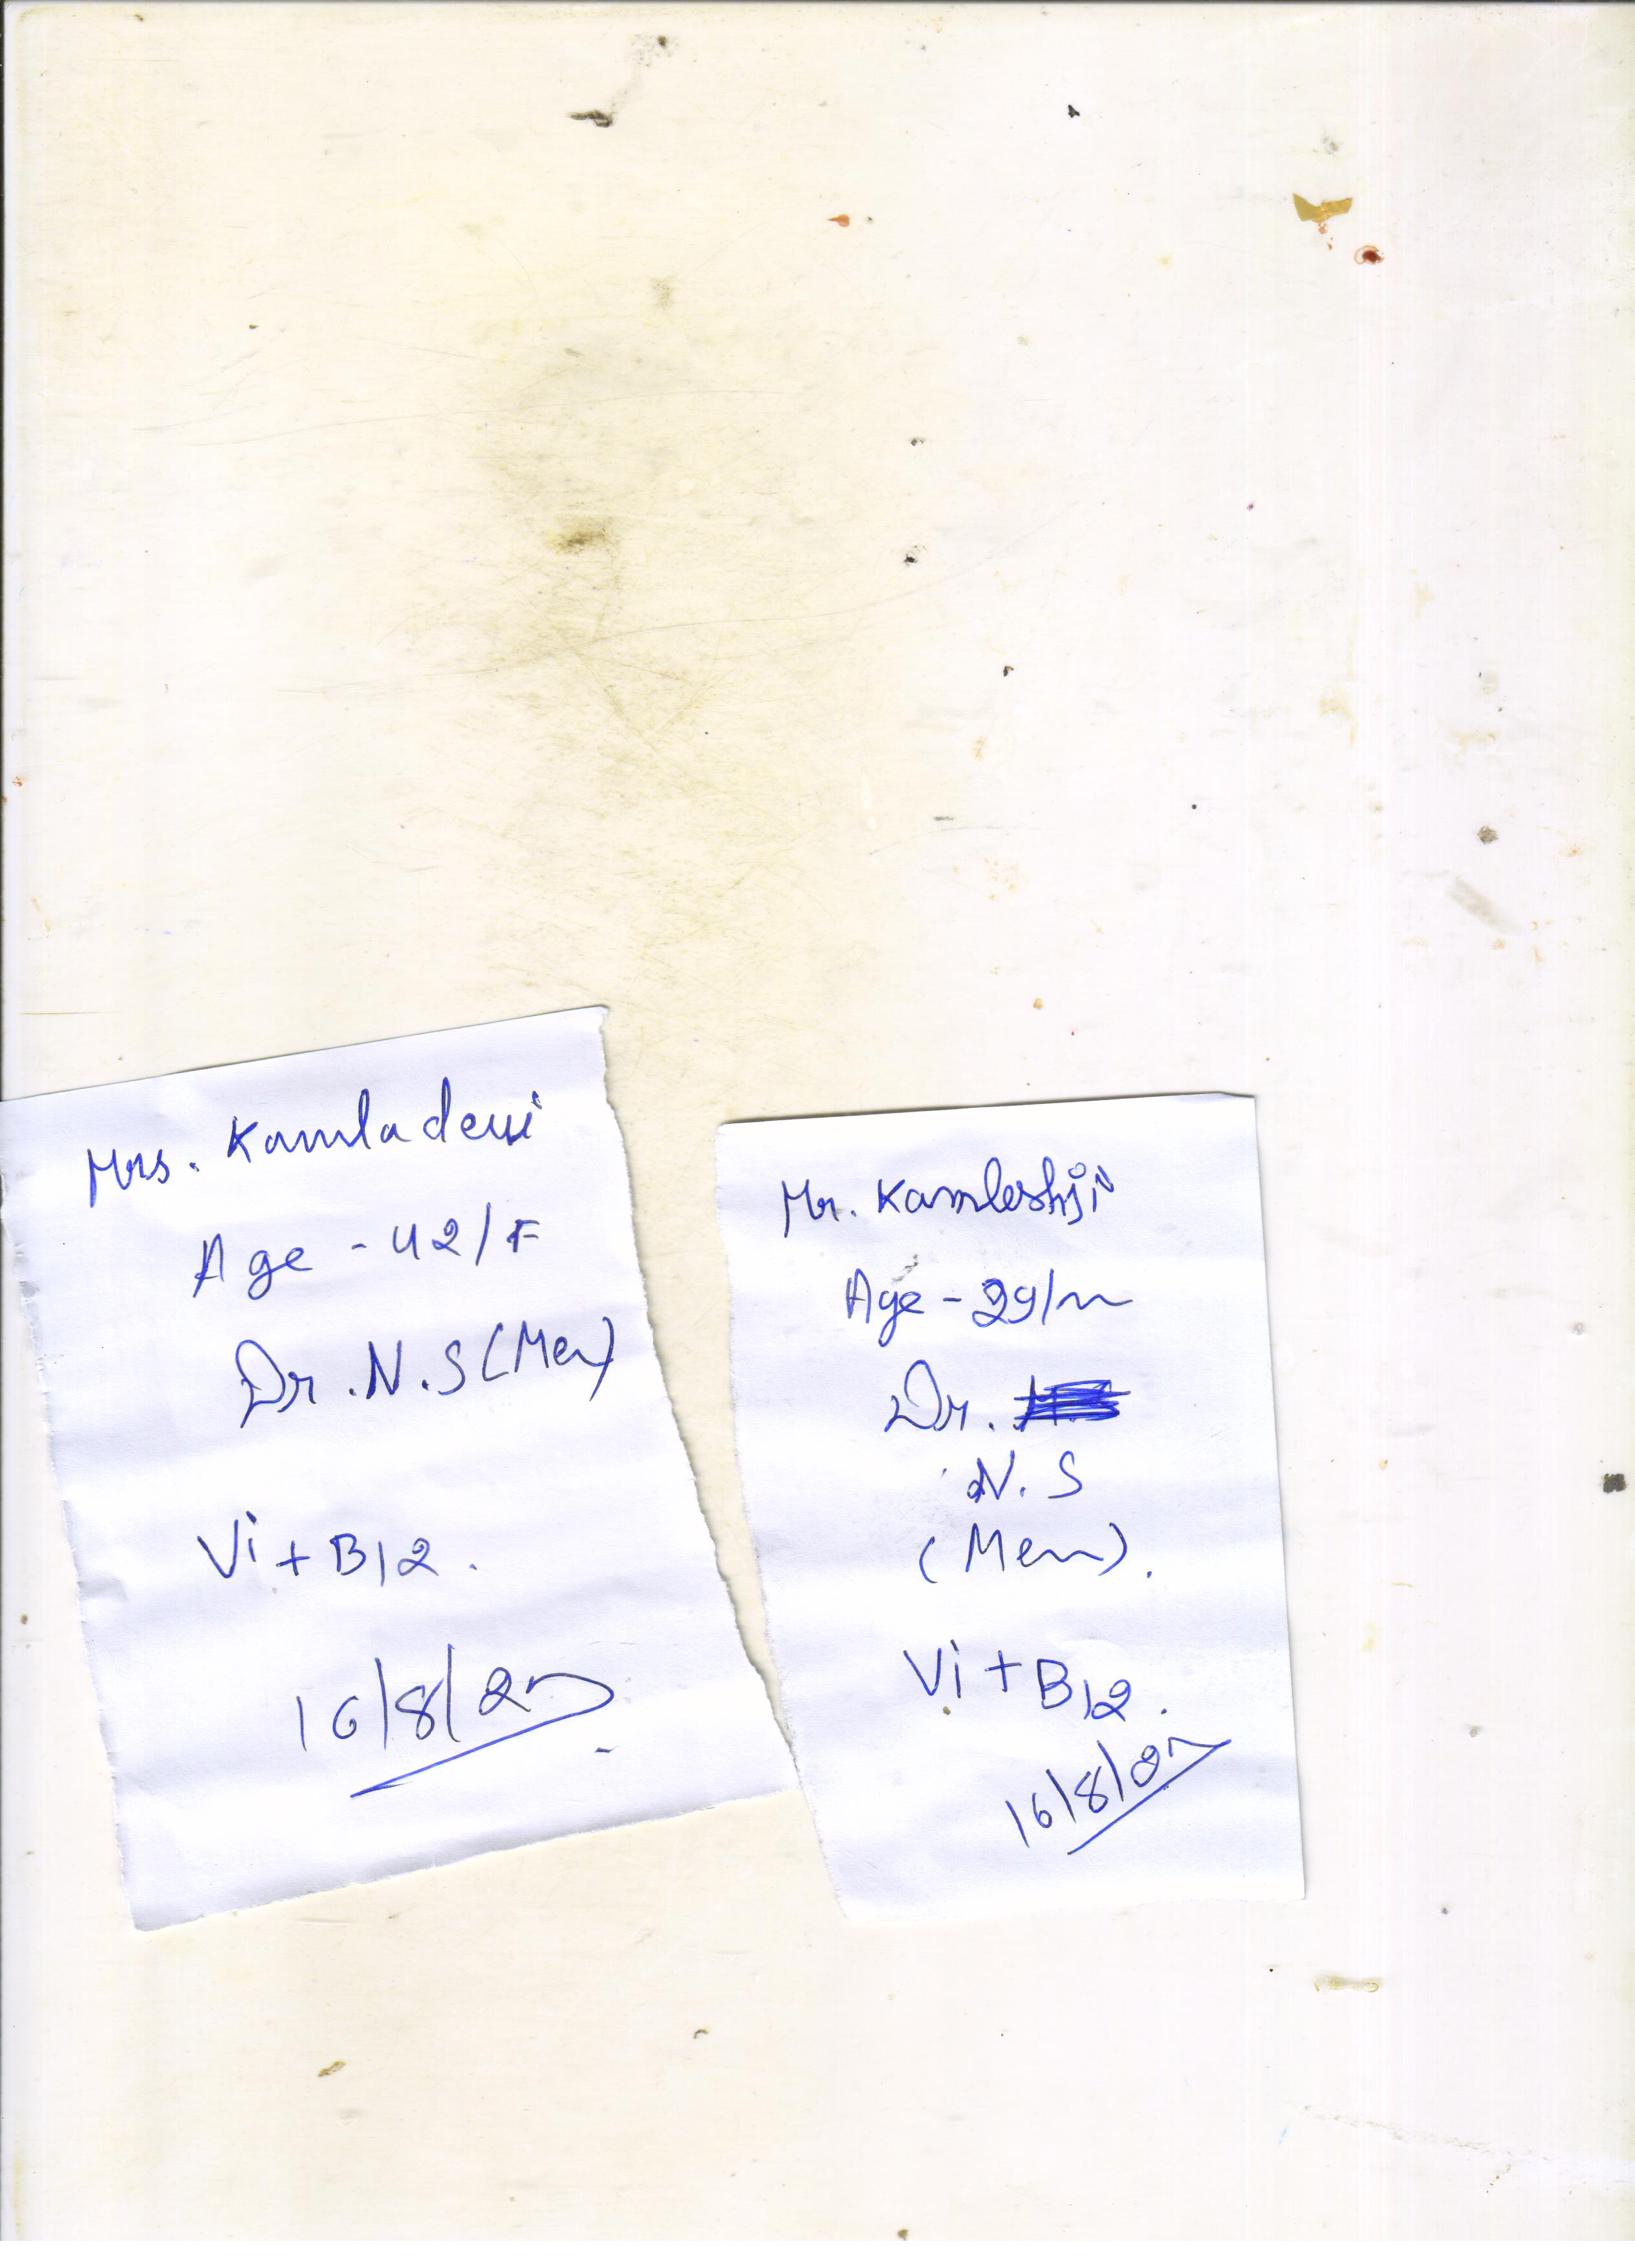 Mrs. Kamladevi
Age - 42/F
Dr. N.S (Mem)
Vi + B12.
16/8/25
Mr. Kamleshji
Age - 29/m
Dr.
N.S
(Mem).
Vi + B12.
16/8/25